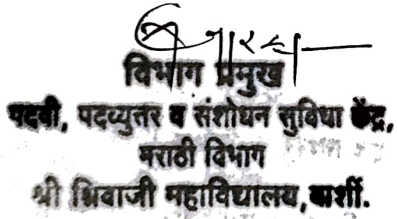 विभाग प्रमुख
पदवी, पदव्युत्तर व संशोधन सुविधा केंद्र,
मराठी विभाग
श्री शिवाजी महाविद्यालय, बार्शी.